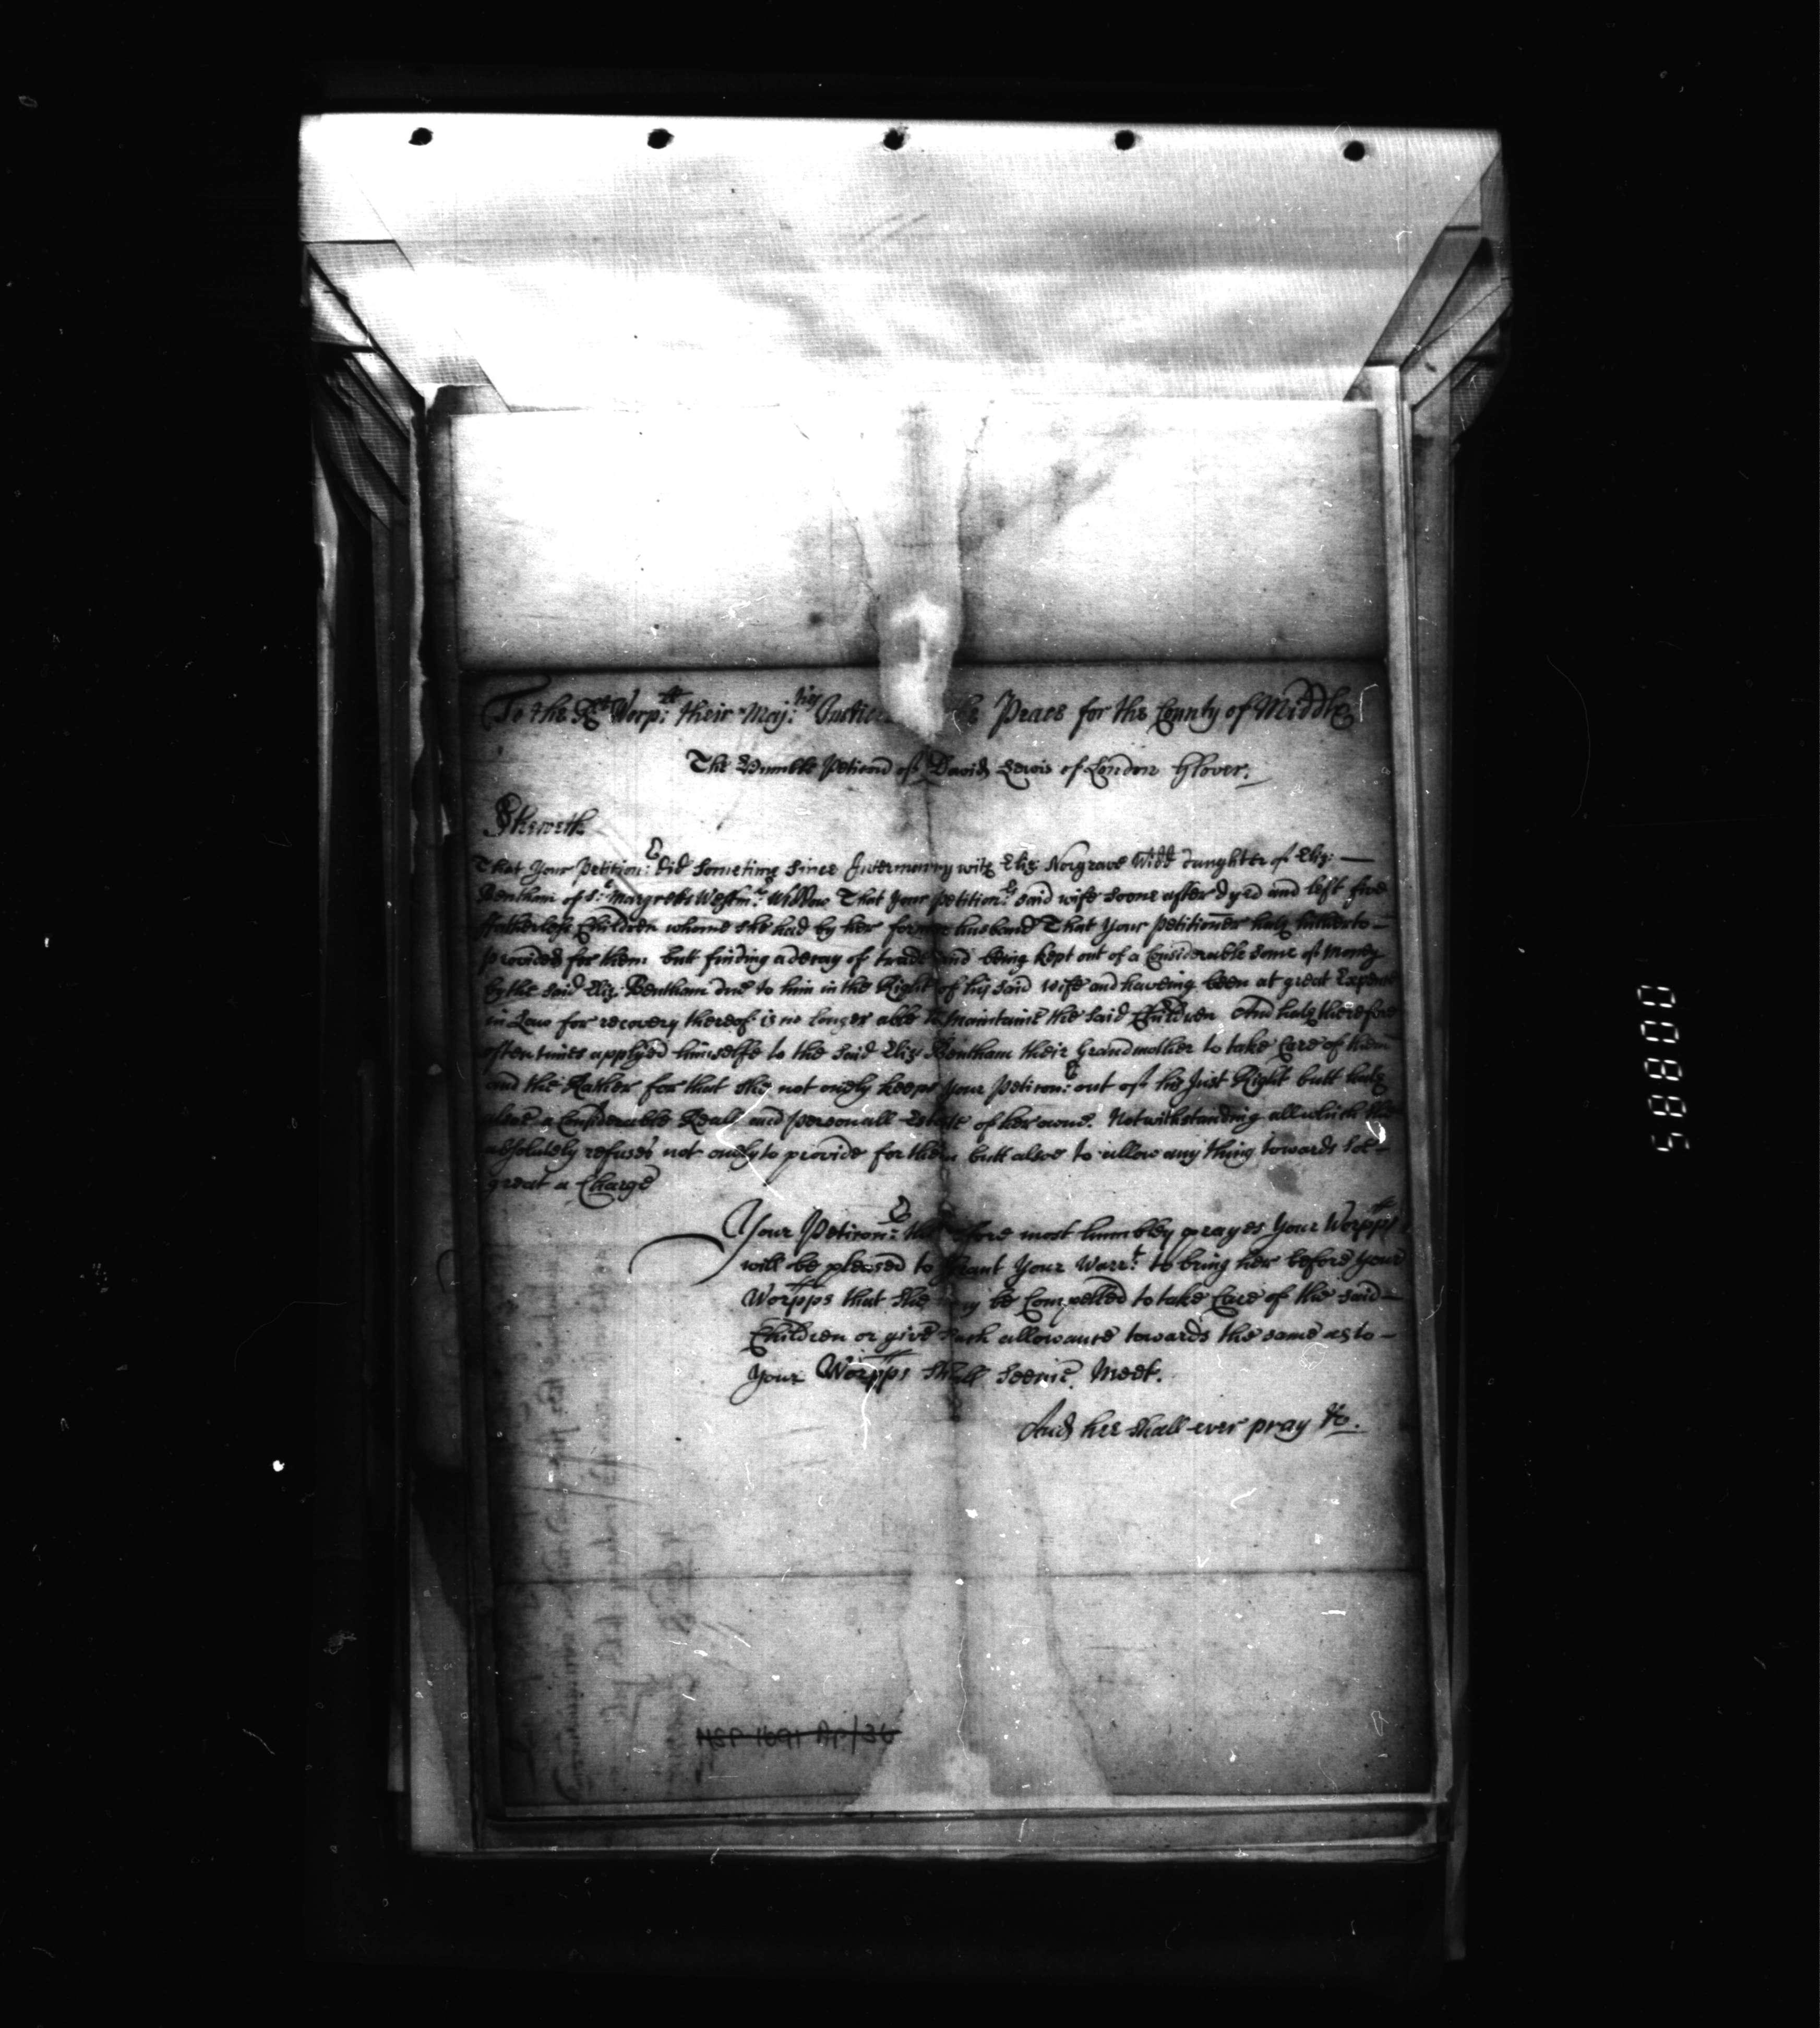 To the Rt Worpll: their Majties Justices the Peace for the County of Middlx
The Humble Peticon of David Lewis of London Glover.
Sheweth
That Your Petitionr: did sometime since Intermarry with Eliz: Norgrave Widd daughter of Eliz:
Bentham of St: Margretts Westmr: Widdow That your petitionrs: said wife soone after dyed and left five
ffatherless Children whome she had by her former husband That Your Petitioner hath hitherto
provided for them butt finding a decay of trade and being kept out of a Considerable some of Money
by the said Eliz: Bentham due to him in the Right of his said wife and haveing been at great Expence
in Law for recovery thereof is no longer able to Maintaine the said Children And hath therefore
oftentimes applyed himselfe to the said Eliz: Bentham their Grandmother to take Care of them
and the Rather for that she not onely keeps Your Peticonr: out of his Just Right butt hath
alsoe a Considerable Reall and personall Estate of her owne. Notwithstanding all which she
absolutely refuses not onely to provide for them butt alsoe to allow any thing towards soe
great a Charge
Your Peticonr: therefore most humbley prayes Your Worpps
will be pleased to Grant Your Warrt: to bring her before your
Worpps that she may be Compelled to take Care of the said
Children or give such allowance towards the same as to
Your Worpps shall seeme Meet.
And hee shall ever pray &c.
MSP 1691 Ap/36
00885